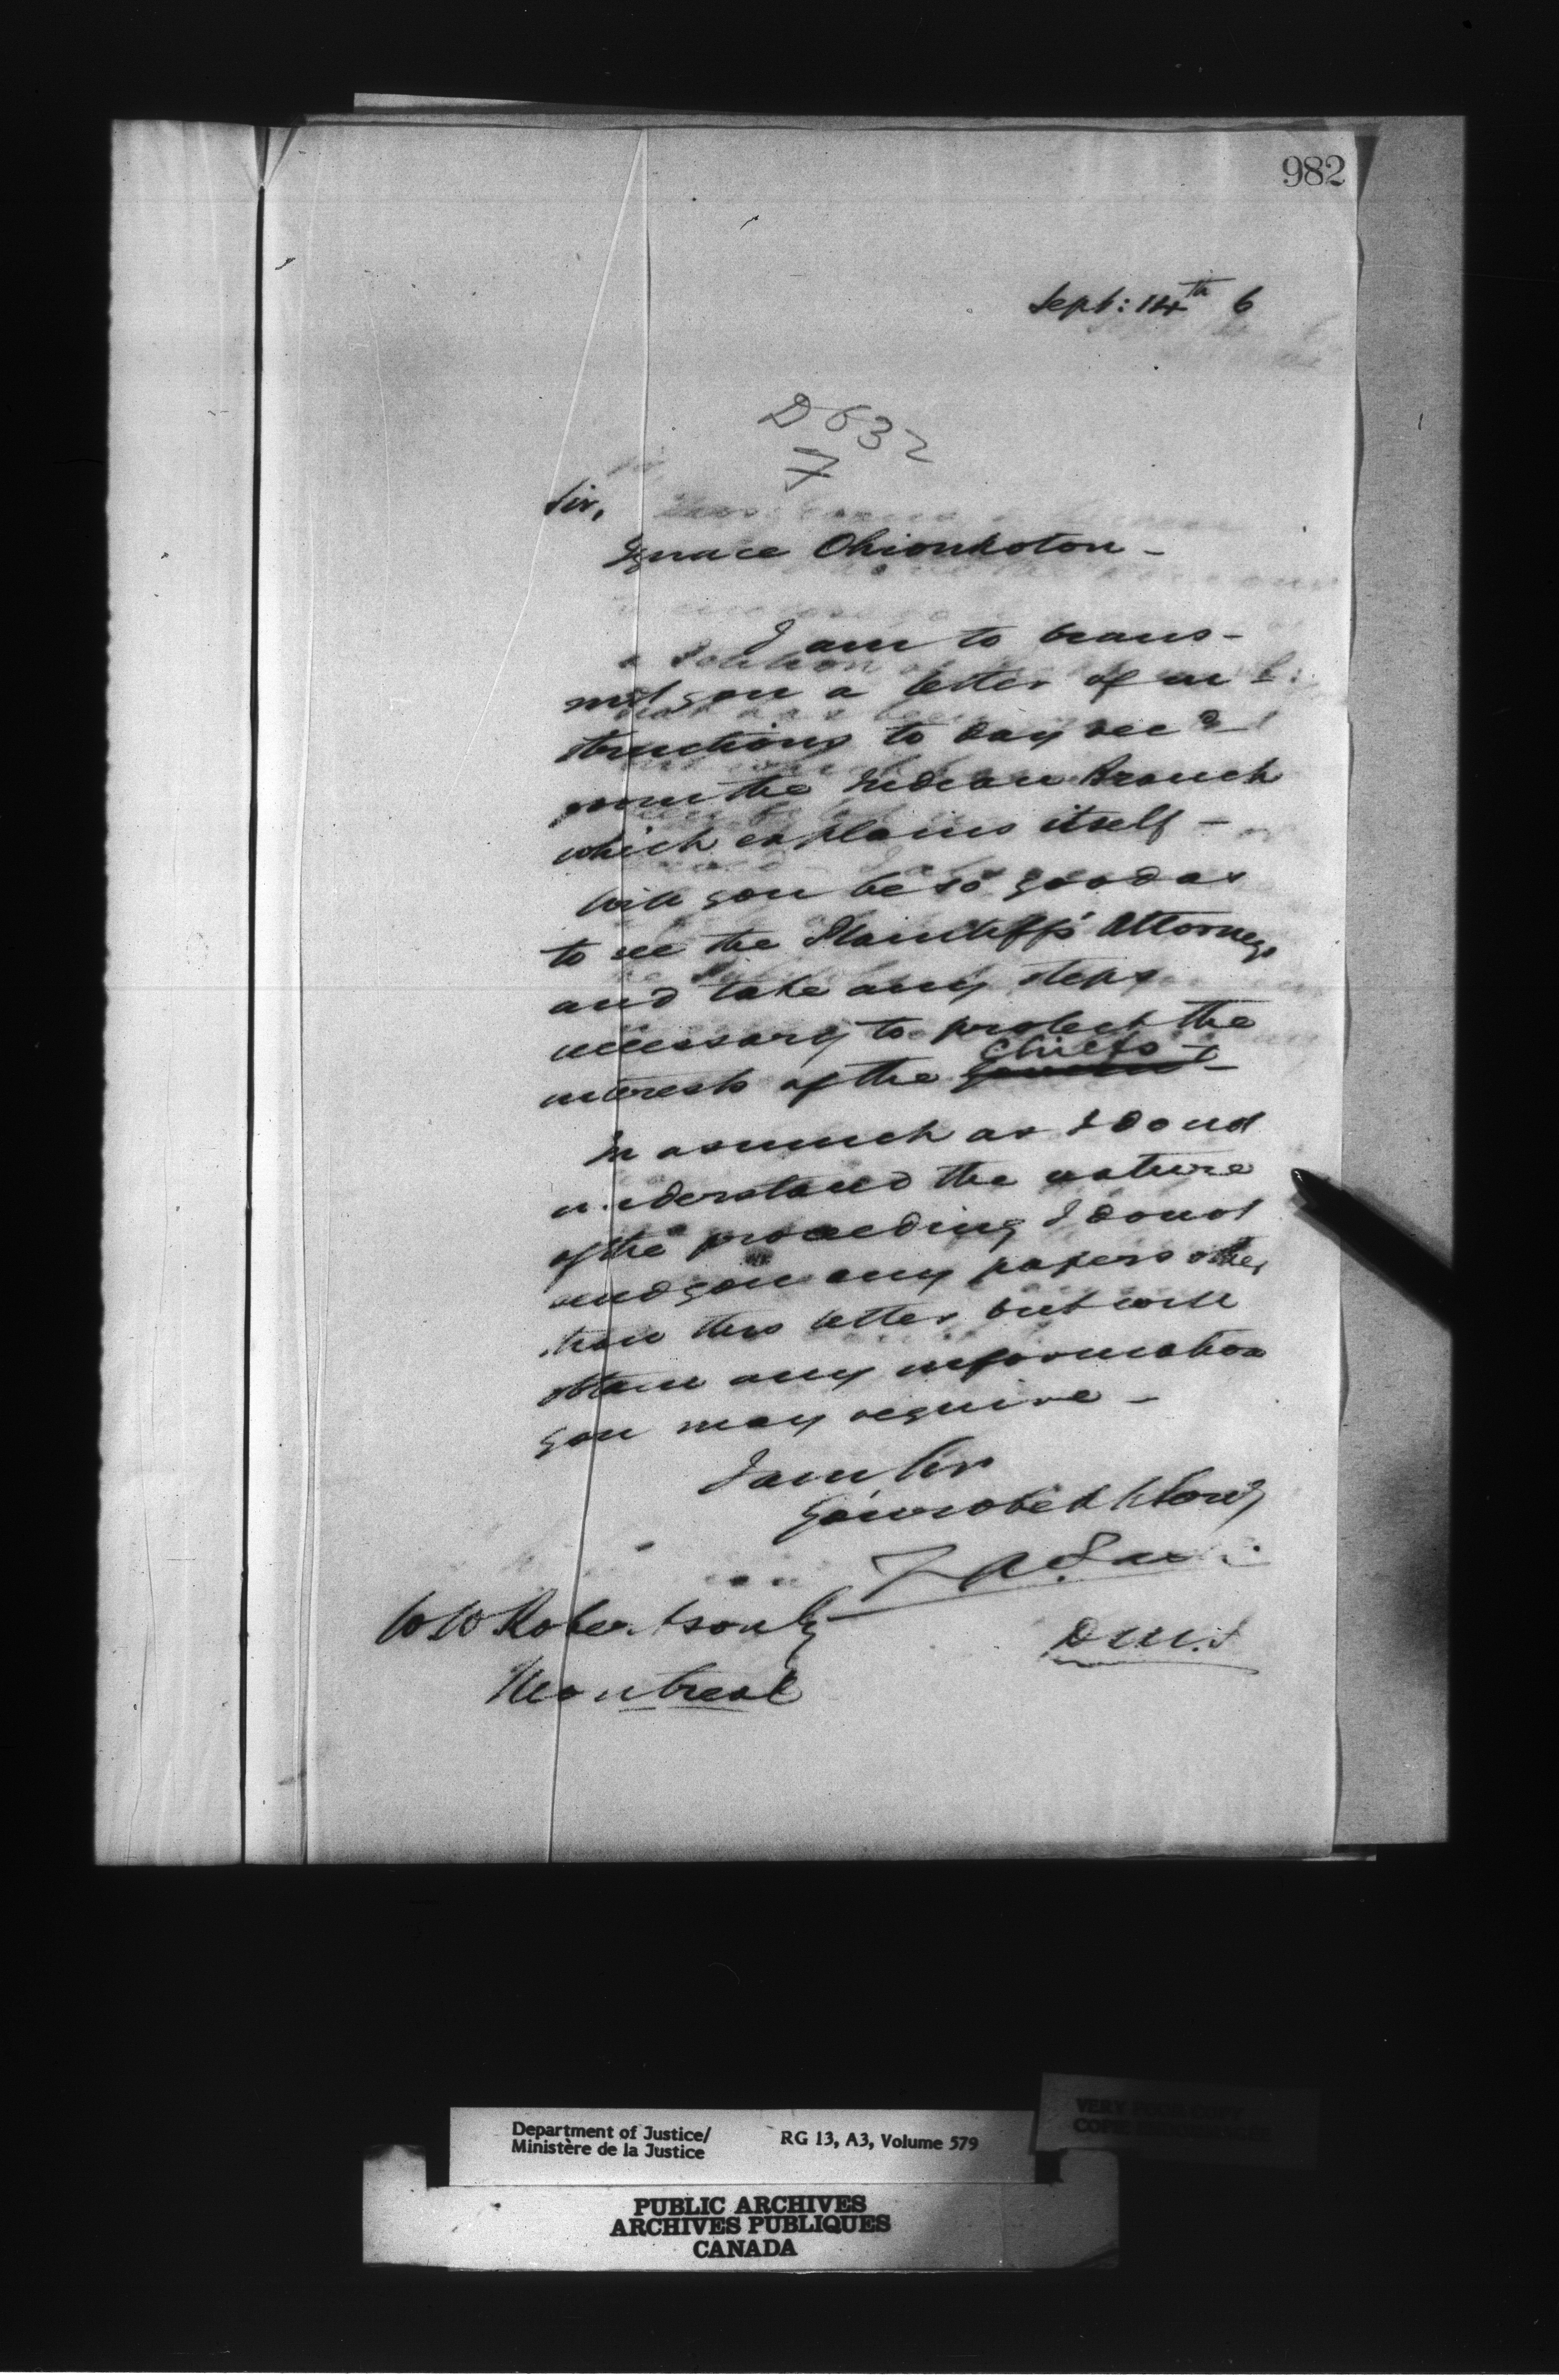 982
Sept: 14th 6
D 632
7
Sir,
Ignace Ohionkoton -
I am to trans-
mit you a letter of in-
structions to day rec d
from the Indian Branch
which explains itself -
Will you be so good as
to see the Plaintiffs' Attorneys
and take any steps
necessary to protect the
interests of the Chiefs -
In asmuch as I do not
understand the nature
of the proceeding I do not
send you any papers other
than this letter but will
obtain any information
you may require -
I am Sir
Your obed t Serv t
D.M.J
W W Robertson Esq
Montreal
Department of Justice/
Ministère de la Justice
RG 13, A3, Volume 579
PUBLIC ARCHIVES
ARCHIVES PUBLIQUES
CANADA